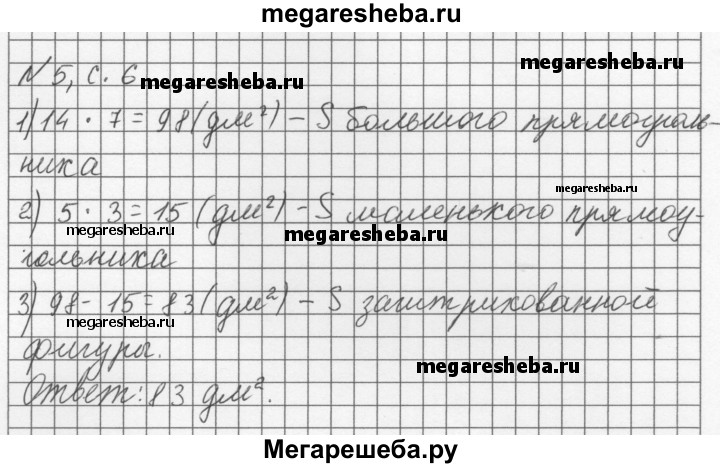 megaresheba.ru
N 5, с. 6 megaresheba.ru megaresheba.ru
1) 14 · 7 = 98 (дм²) – S большого прямоуголь-
ника megaresheba.ru
2) 5 · 3 = 15 (дм²) – S маленького прямоу-
megaresheba.ru megaresheba.ru
гольника
3) 98 - 15 = 83 (дм²) – S заштрихованной
megaresheba.ru
фигуры. megaresheba.ru
Ответ: 83 дм².
Мегарешеба.ру